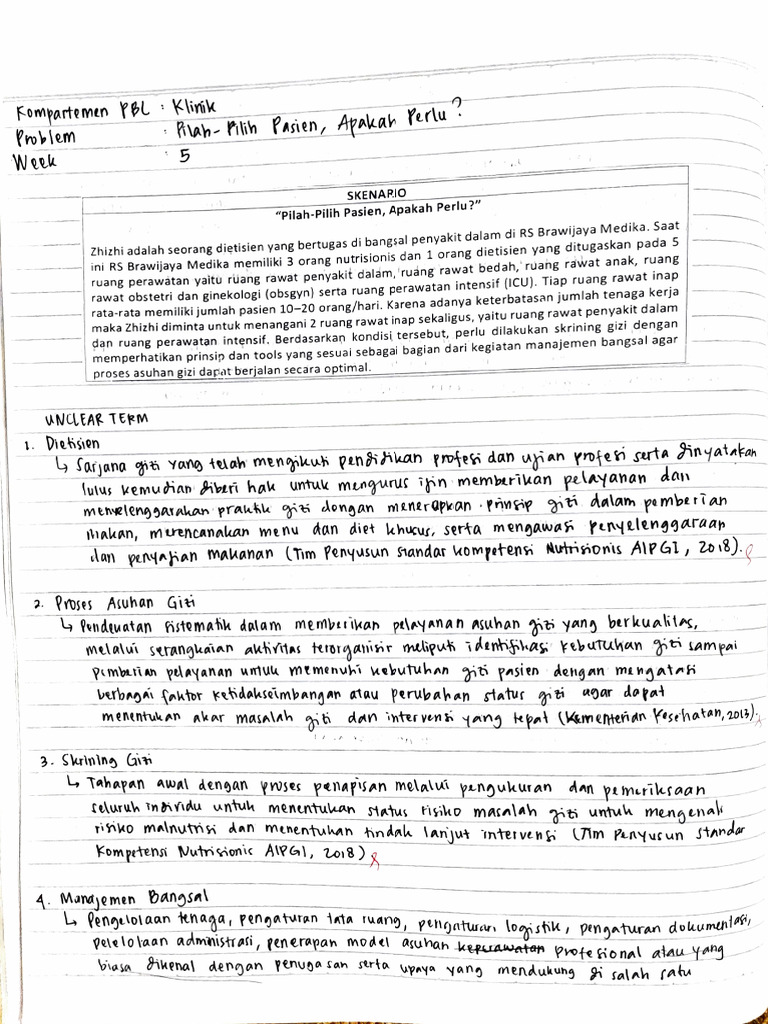 Kompartemen PBL : Klinik
Problem : Pilah-Pilih Pasien, Apakah Perlu?
Week : 5
SKENARIO
"Pilah-Pilih Pasien, Apakah Perlu?"
Zhizhi adalah seorang dietisien yang bertugas di bangsal penyakit dalam di RS Brawijaya Medika. Saat
ini RS Brawijaya Medika memiliki 3 orang nutrisionis dan 1 orang dietisien yang ditugaskan pada 5
ruang perawatan yaitu ruang rawat penyakit dalam, ruang rawat bedah, ruang rawat anak, ruang
rawat obstetri dan ginekologi (obsgyn) serta ruang perawatan intensif (ICU). Tiap ruang rawat inap
rata-rata memiliki jumlah pasien 10–20 orang/hari. Karena adanya keterbatasan jumlah tenaga kerja
maka Zhizhi diminta untuk menangani 2 ruang rawat inap sekaligus, yaitu ruang rawat penyakit dalam
dan ruang perawatan intensif. Berdasarkan kondisi tersebut, perlu dilakukan skrining gizi dengan
memperhatikan prinsip dan tools yang sesuai sebagai bagian dari kegiatan manajemen bangsal agar
proses asuhan gizi dapat berjalan secara optimal.
UNCLEAR TERM
1. Dietisien
↳ Sarjana gizi yang telah mengikuti pendidikan profesi dan ujian profesi serta dinyatakan
lulus kemudian diberi hak untuk mengurus ijin memberikan pelayanan dan
menyelenggarakan praktik gizi dengan menerapkan prinsip gizi dalam pemberian
makan, merencanakan menu dan diet khusus, serta mengawasi penyelenggaraan
dan penyajian makanan (Tim Penyusun Standar Kompetensi Nutrisionis AIPGI, 2018).
2. Proses Asuhan Gizi
↳ Pendekatan sistematik dalam memberikan pelayanan asuhan gizi yang berkualitas,
melalui serangkaian aktivitas terorganisir meliputi identifikasi kebutuhan gizi sampai
pemberian pelayanan untuk memenuhi kebutuhan gizi pasien dengan mengatasi
berbagai faktor ketidakseimbangan atau perubahan status gizi agar dapat
menentukan akar masalah gizi dan intervensi yang tepat (Kementerian Kesehatan, 2013).
3. Skrining Gizi
↳ Tahapan awal dengan proses penapisan melalui pengukuran dan pemeriksaan
seluruh individu untuk menentukan status risiko masalah gizi untuk mengenali
risiko malnutrisi dan menentukan tindak lanjut intervensi (Tim Penyusun Standar
Kompetensi Nutrisionis AIPGI, 2018)
4. Manajemen Bangsal
↳ Pengelolaan tenaga, pengaturan tata ruang, pengaturan logistik, pengaturan dokumentasi,
pelelolaan administrasi, penerapan model asuhan keperawatan profesional atau yang
biasa dikenal dengan penugasan serta upaya yang mendukung di salah satu